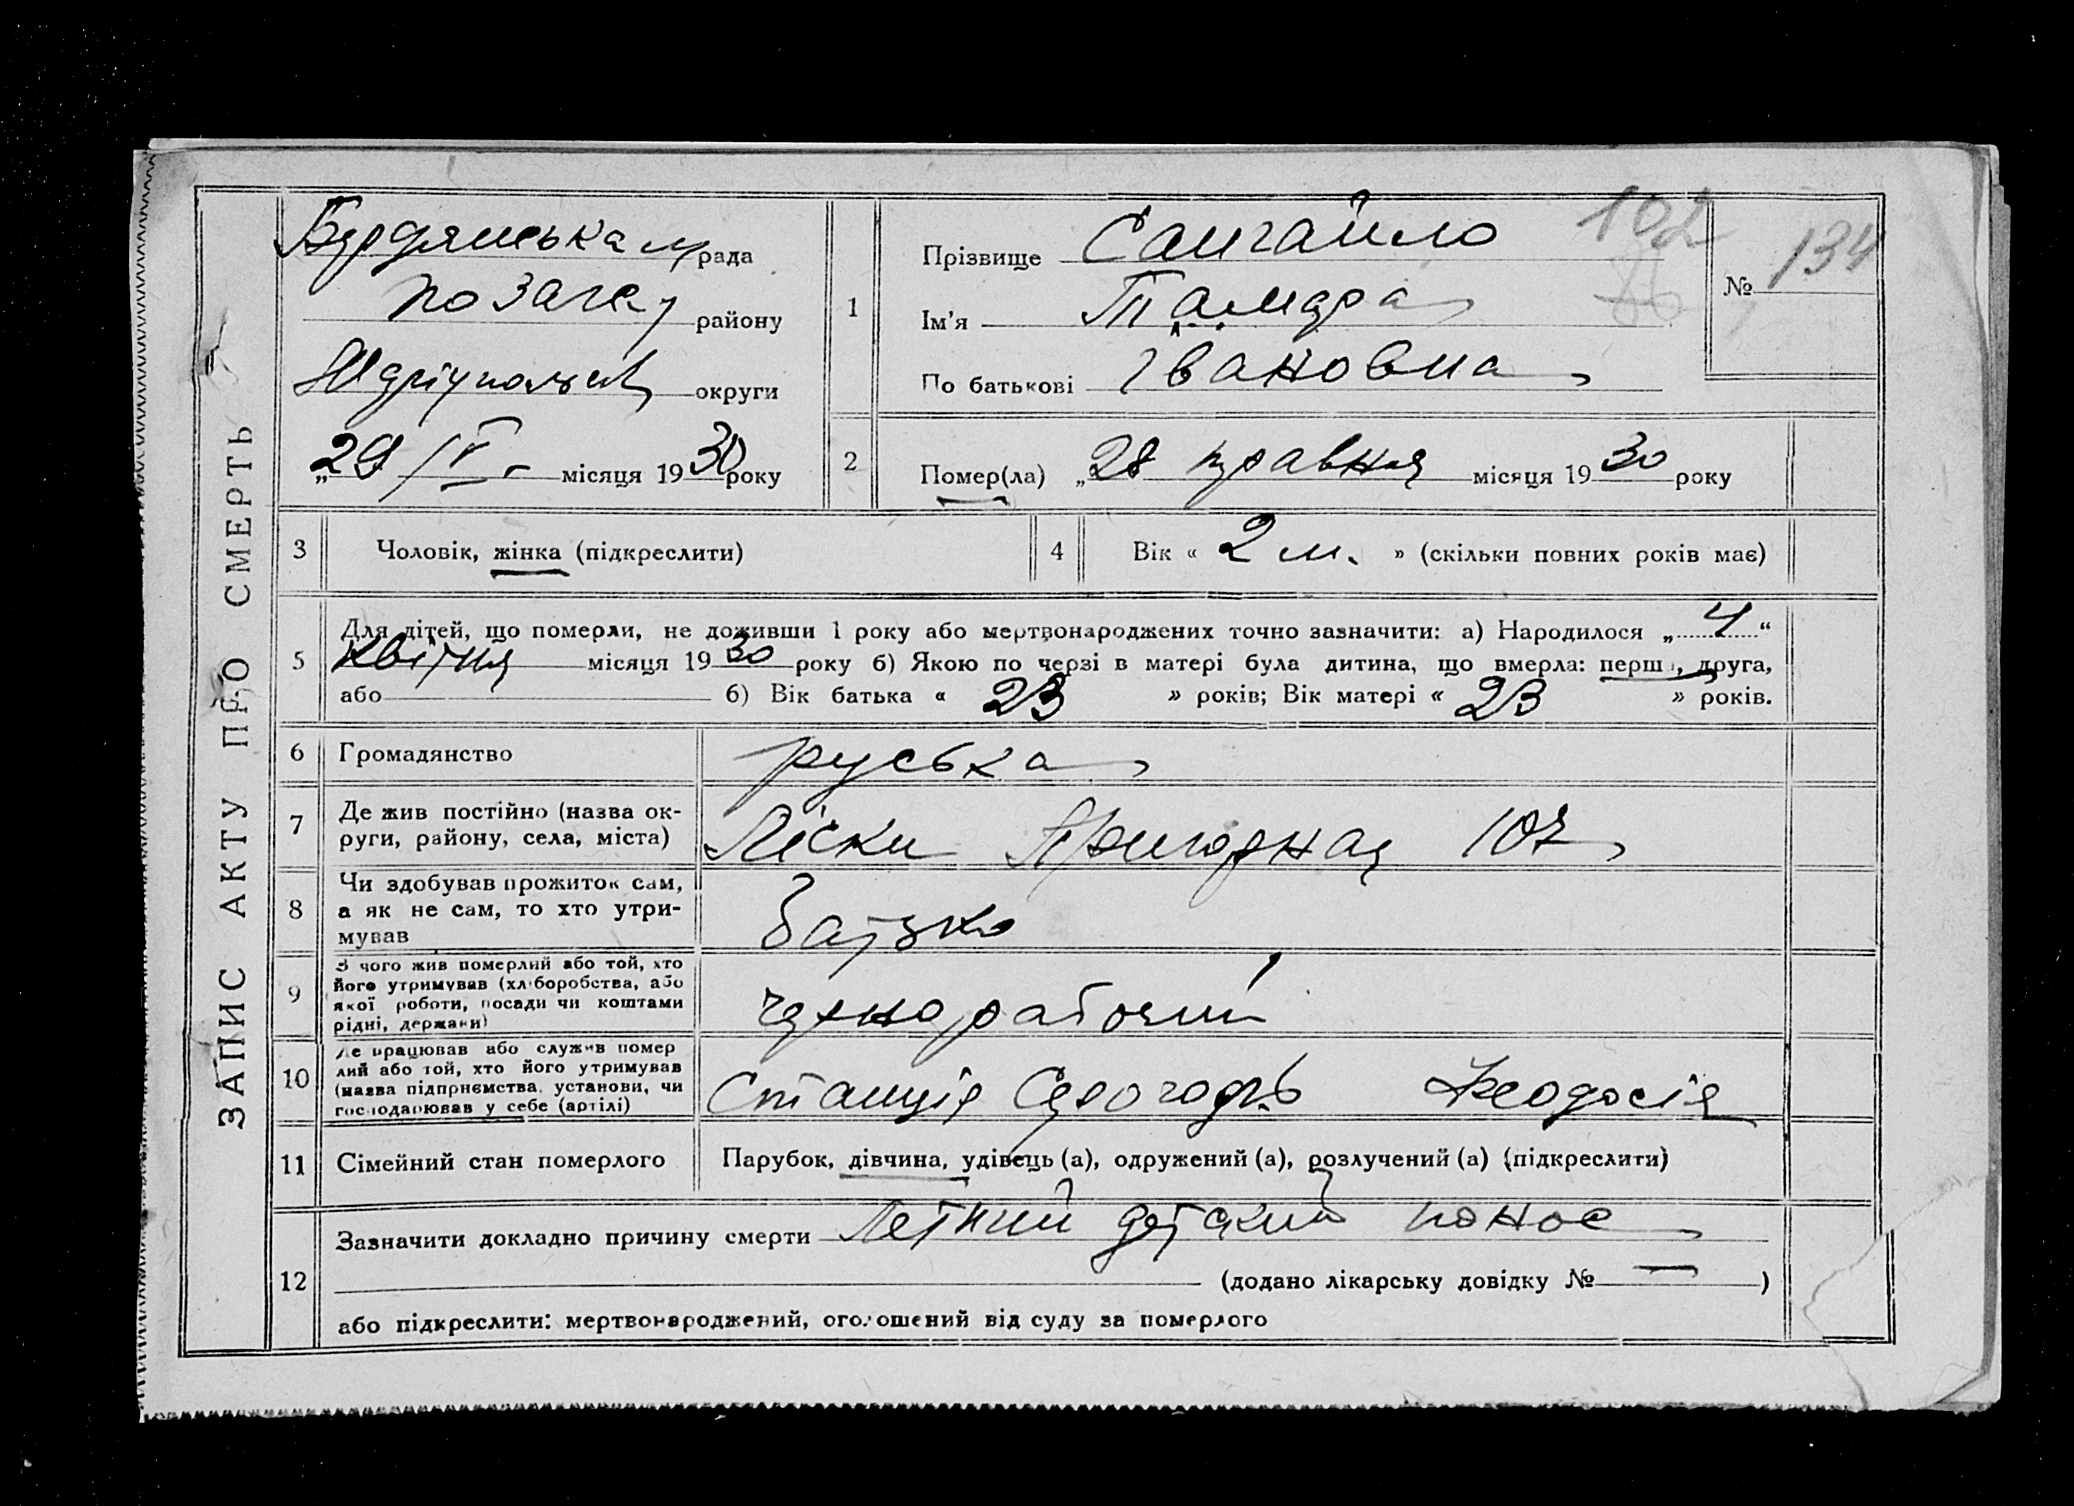 ЗАПИС АКТУ ПРО СМЕРТЬ
Бердянська м рада
району
Маріупольськ округи
„29 /V місяця 1930 року
1
Прізвище Сангайло
Ім'я Тамара
По батькові Івановна
102
№ 134
2
Помер(ла) „28 травня місяця 1930 року
3 Чоловік, жінка (підкреслити)
4 Вік « 2 м. » (скільки повних років має)
5 Для дітей, що померли, не доживши 1 року або мертвонароджених точно зазначити: а) Народилося „4“
Квітня місяця 1930 року б) Якою по черзі в матері була дитина, що вмерла: перша, друга,
або б) Вік батька « 23 » років; Вік матері « 23 » років.
6 Громадянство руська
7 Де жив постійно (назва ок-
руги, района, села, міста) Ліски Пригорная 107
8 Чи здобував прожиток сам,
а як не сам, то хто утри-
мував Батько
9 З чого жив померлий або той, хто
його утримував (хліборобства, або
якої роботи, посади чи коштами
рідні, держави) чернорабочий
10 Де працював або служив помер
лий або той, хто його утримував
(назва підприємства, установи, чи
господарював у себе (артілі) Станція Феодосія
11 Сімейний стан померлого Парубок, дівчина, удівець (а), одружений (а), розлучений (а) (підкреслити)
12 Зазначити докладно причину смерти Летний детский понос
(додано лікарську довідку № — )
або підкреслити: мертвонароджений, оголошений від суду за померлого